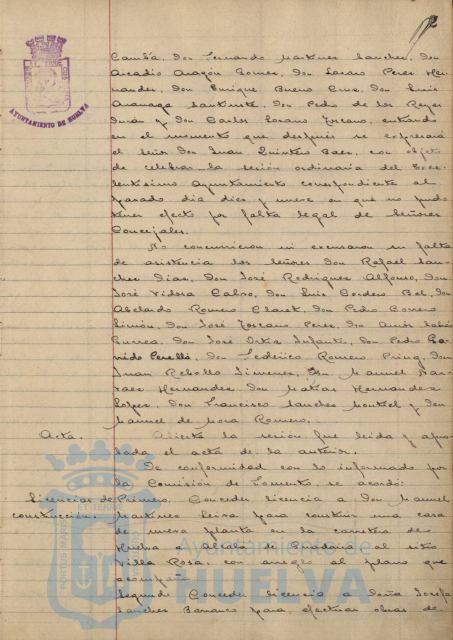 2
AYUNTAMIENTO DE HUELVA
Cambá, Don Fernando Martinez Sanchez, Don
Arcadio Aragón Gomez, Don Lazaro Perez Her-
nandez, Don Enrique Bueno Cruz, Don Luis
Don Pedro de los Reyes
Durán y Don Carlos Lozano Toscano, entrando
en el momento que después se expresará
el señor Don Juan Quintero Baez, con objeto
de celebrar la sesión ordinaria del Exce-
lentísimo Ayuntamiento correspondiente al
pasado dia diez y nueve en que no pudo
tener efecto por falta legal de Señores
Concejales.
No concurrieron ni excusaron su falta
de asistencia los señores Don Rafael San-
chez Diaz, Don José Rodriguez Alfonso, Don
José Vidosa Calvo, Don Luis Cordero Bel, Don
Abelardo Romero Claret, Don Pedro Borrero
Limón, Don José Toscano Perez, Don Amós Sabrás
Gurrea, Don José Ortiz Infante, Don Pedro Ga-
rrido Perelló, Don Federico Romero Don
Juan Rebollo Jimenez, Don Manuel Bar-
Hernandez, Don Matías Hernandez
Lopez, Don Francisco Sanchez Montiel y Don
Manuel de Mora Romero.
Acta. Abierta la sesión fue leida y apro-
bada el acta de la anterior.
De conformidad con lo informado por
la Comisión de Fomento, se acordó:
Licencias de Primero. Conceder licencia a Don Manuel
construcción. Martinez Leiva para construir una casa
de nueva planta en la carretera de
Huelva a Alcalá de Guadaira al sitio
Villa Rosa, con arreglo al plano que
acompaña.
Segundo. Conceder licencia a Doña Josefa
Sanchez Barranco para efectuar obras de
Ayuntamiento de
HUELVA